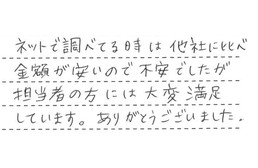 ネットで調べてる時は他社に比べ
金額が安いので不安でしたが
担当者の方には大変満足
しています。ありがとうございました。